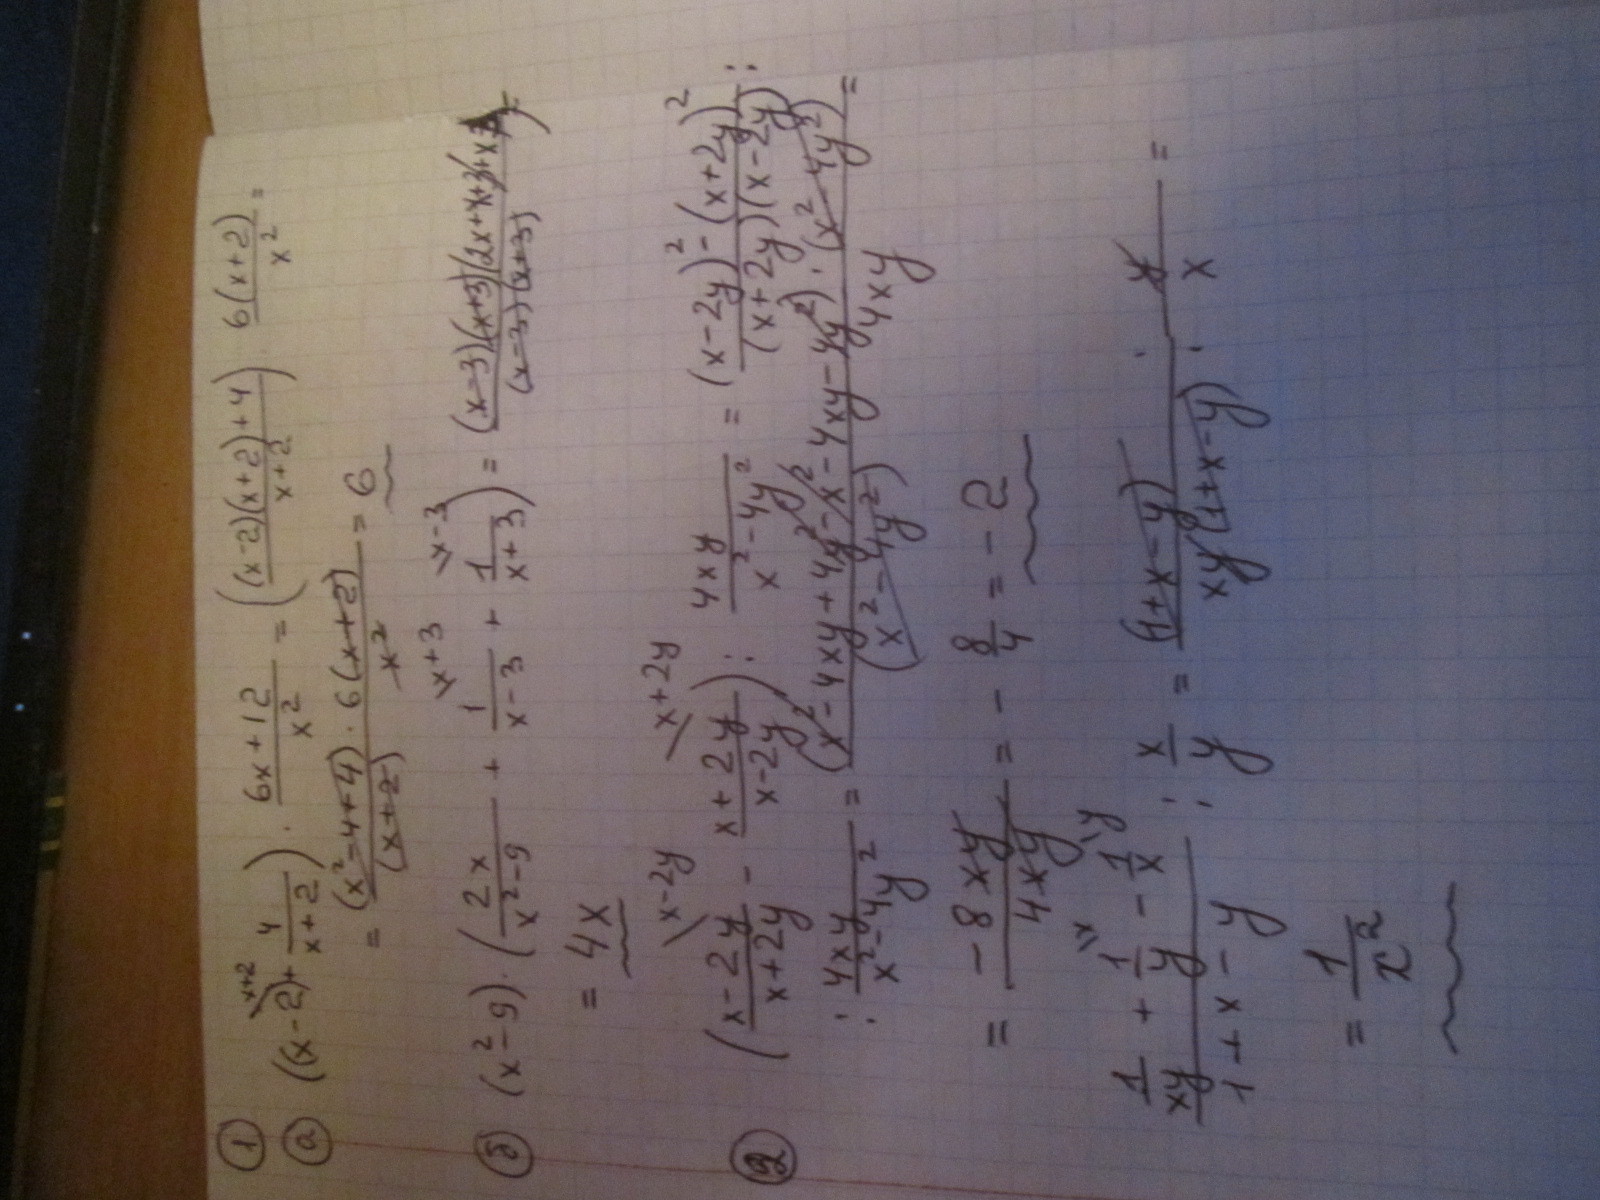 1
а) ((x-2)+ 4/(x+2)) · (6x+12)/x² = ((x-2)(x+2)+4)/(x+2)) · 6(x+2)/x² =
= (x²-4+4)·6(x+2)/((x+2) x²) = 6
б) (x²-9)·(2x/(x²-9) + 1/(x-3) + 1/(x+3)) = (x-3)(x+3)(2x+x+3+x-3)/((x-3)(x+3))
= 4x
2 ((x-2y)/(x+2y) - (x+2y)/(x-2y)) : 4xy/(x²-4y²) = ((x-2y)²-(x+2y)²)/((x+2y)(x-2y)) :
: 4xy/(x²-4y²) = (x²-4xy+4y²-x²-4xy-4y²)·(x²-4y²)/((x²-4y²) 4xy) =
= -8xy/4xy = -8/4 = -2
(1/xy + 1/y - 1/x)/(1+x-y) : x/y = (1+x-y)/(xy(1+x-y)) · y/x =
= 1/x²